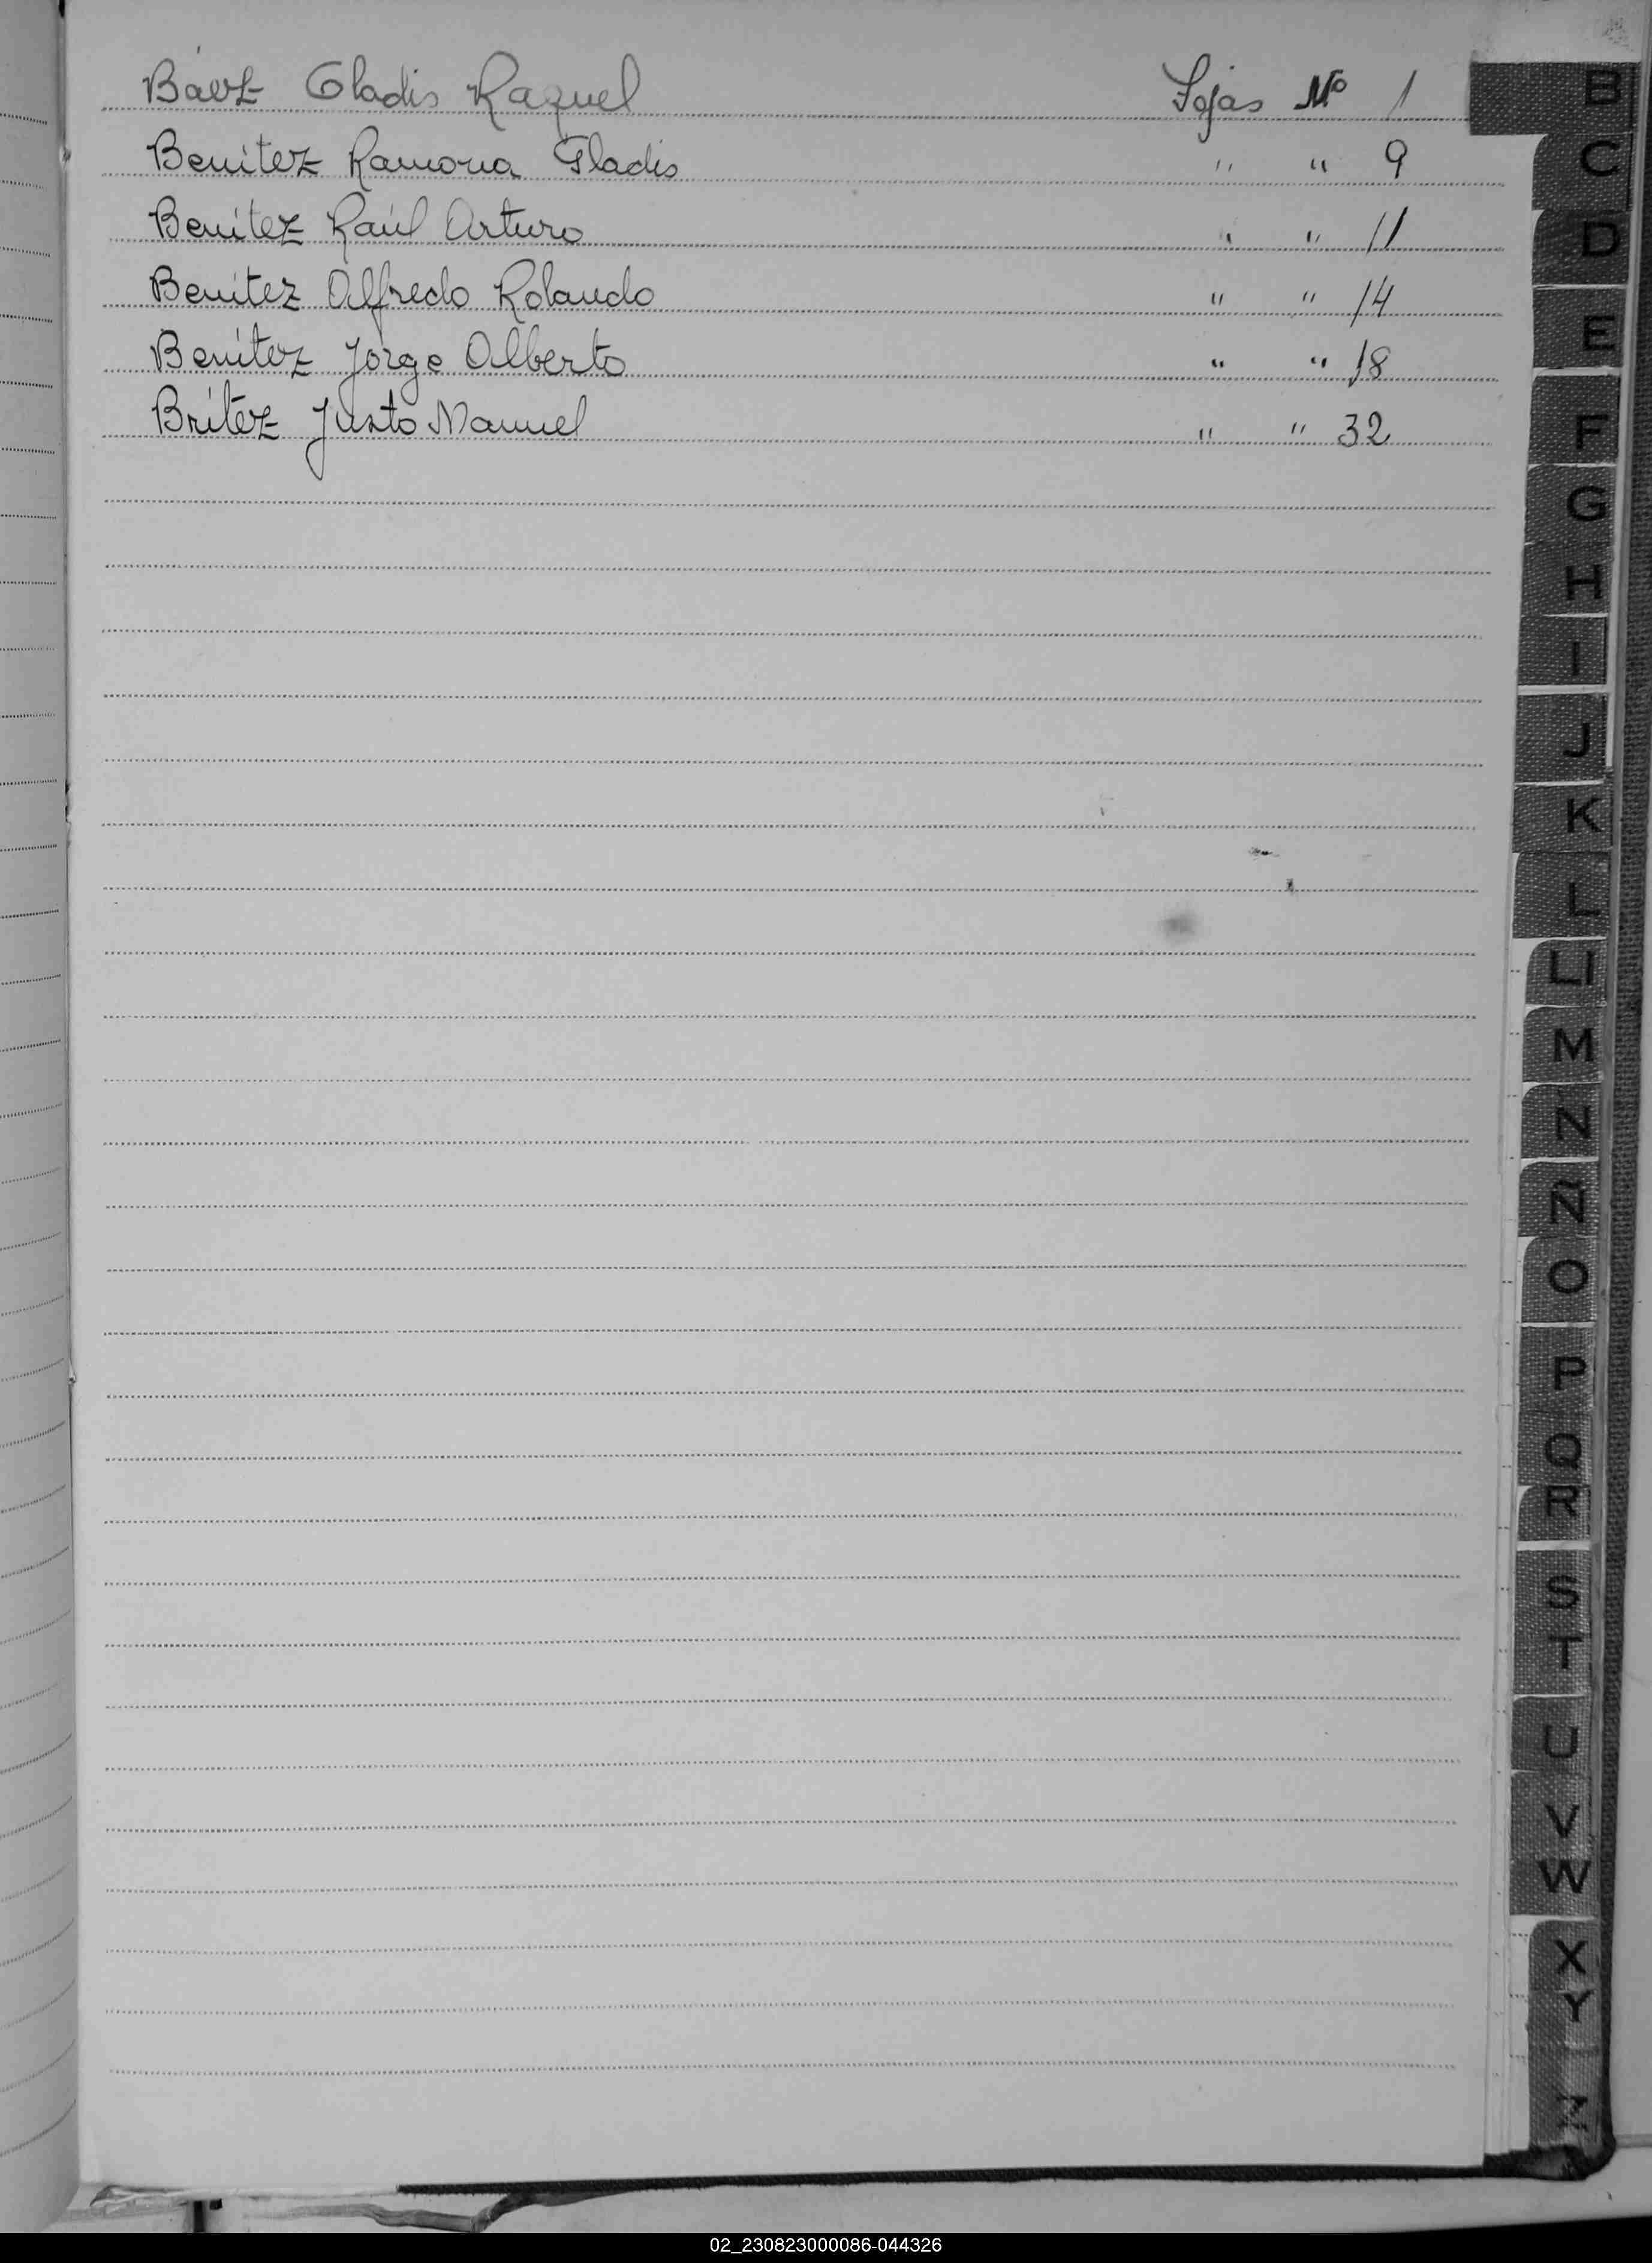 Báez Gladis Raquel Fojas Nº 1
Benítez Ramona Gladis " " 9
Benítez Raúl Arturo " " 11
Benítez Alfredo Rolando " " 14
Benítez Jorge Alberto " " 18
Brítez Justo Manuel " " 32
B
C
D
E
F
G
H
I
J
K
L
LL
M
N
Ñ
O
P
Q
R
S
T
U
V
W
X
Y
Z
02_230823000086-044326